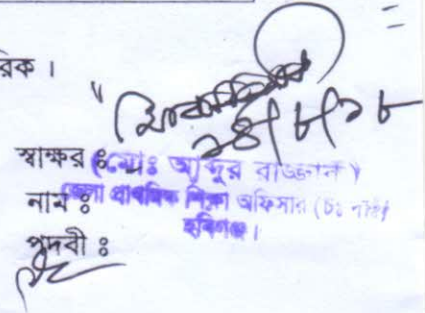 রিক ।
২৪/৮/১৮
স্বাক্ষর ঃ
(মোঃ আব্দুর রাজ্জাক)
নাম ঃ
জেলা প্রাথমিক শিক্ষা অফিসার (চঃ দাঃ)
হবিগঞ্জ।
পদবী ঃ